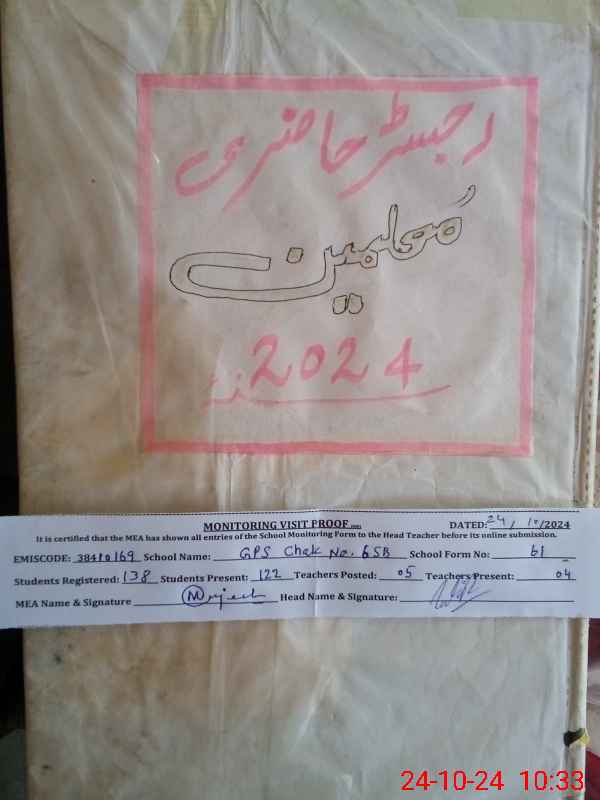 رجسٹر حاضری
معلمین
2024ء
MONITORING VISIT PROOF
DATED: 24/10/2024
It is certified that the MEA has shown all entries of the School Monitoring Form to the Head Teacher before its online submission.
EMISCODE: 38410169 School Name: GPS Chak No. 6SB School Form No: 61
Students Registered: 138 Students Present: 122 Teachers Posted: 05 Teachers Present: 04
MEA Name & Signature Head Name & Signature:
24-10-24 10:33